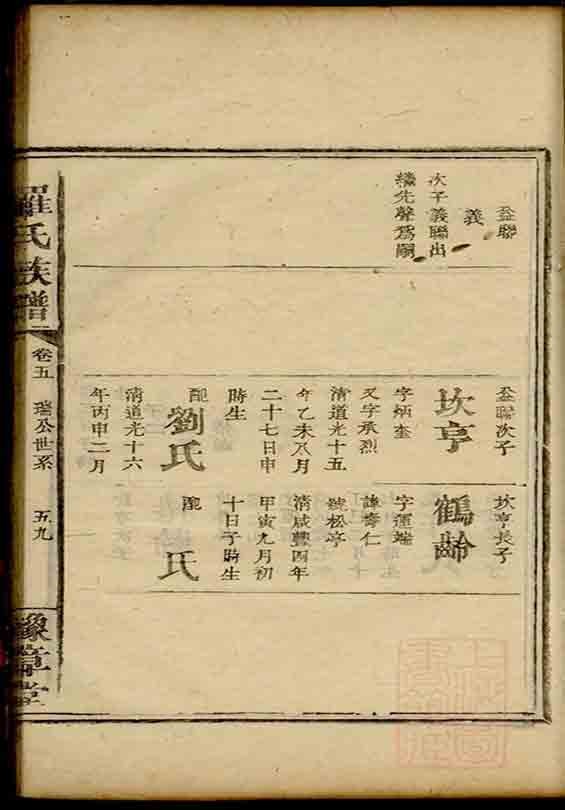 益聯
義
次子義聯出
繼先聲爲嗣
益聯次子
坎亨
字炳奎
又字承烈
清道光十五
年乙未八月
二十七日申
時生
配劉氏
清道光十六
年丙申二月
坎亨長子
鶴齡
字運端
諱壽仁
號松亭
清咸豐四年
甲寅九月初
十日子時生
配 氏
羅氏族譜
卷五
瑞公世系
五九
豫章堂